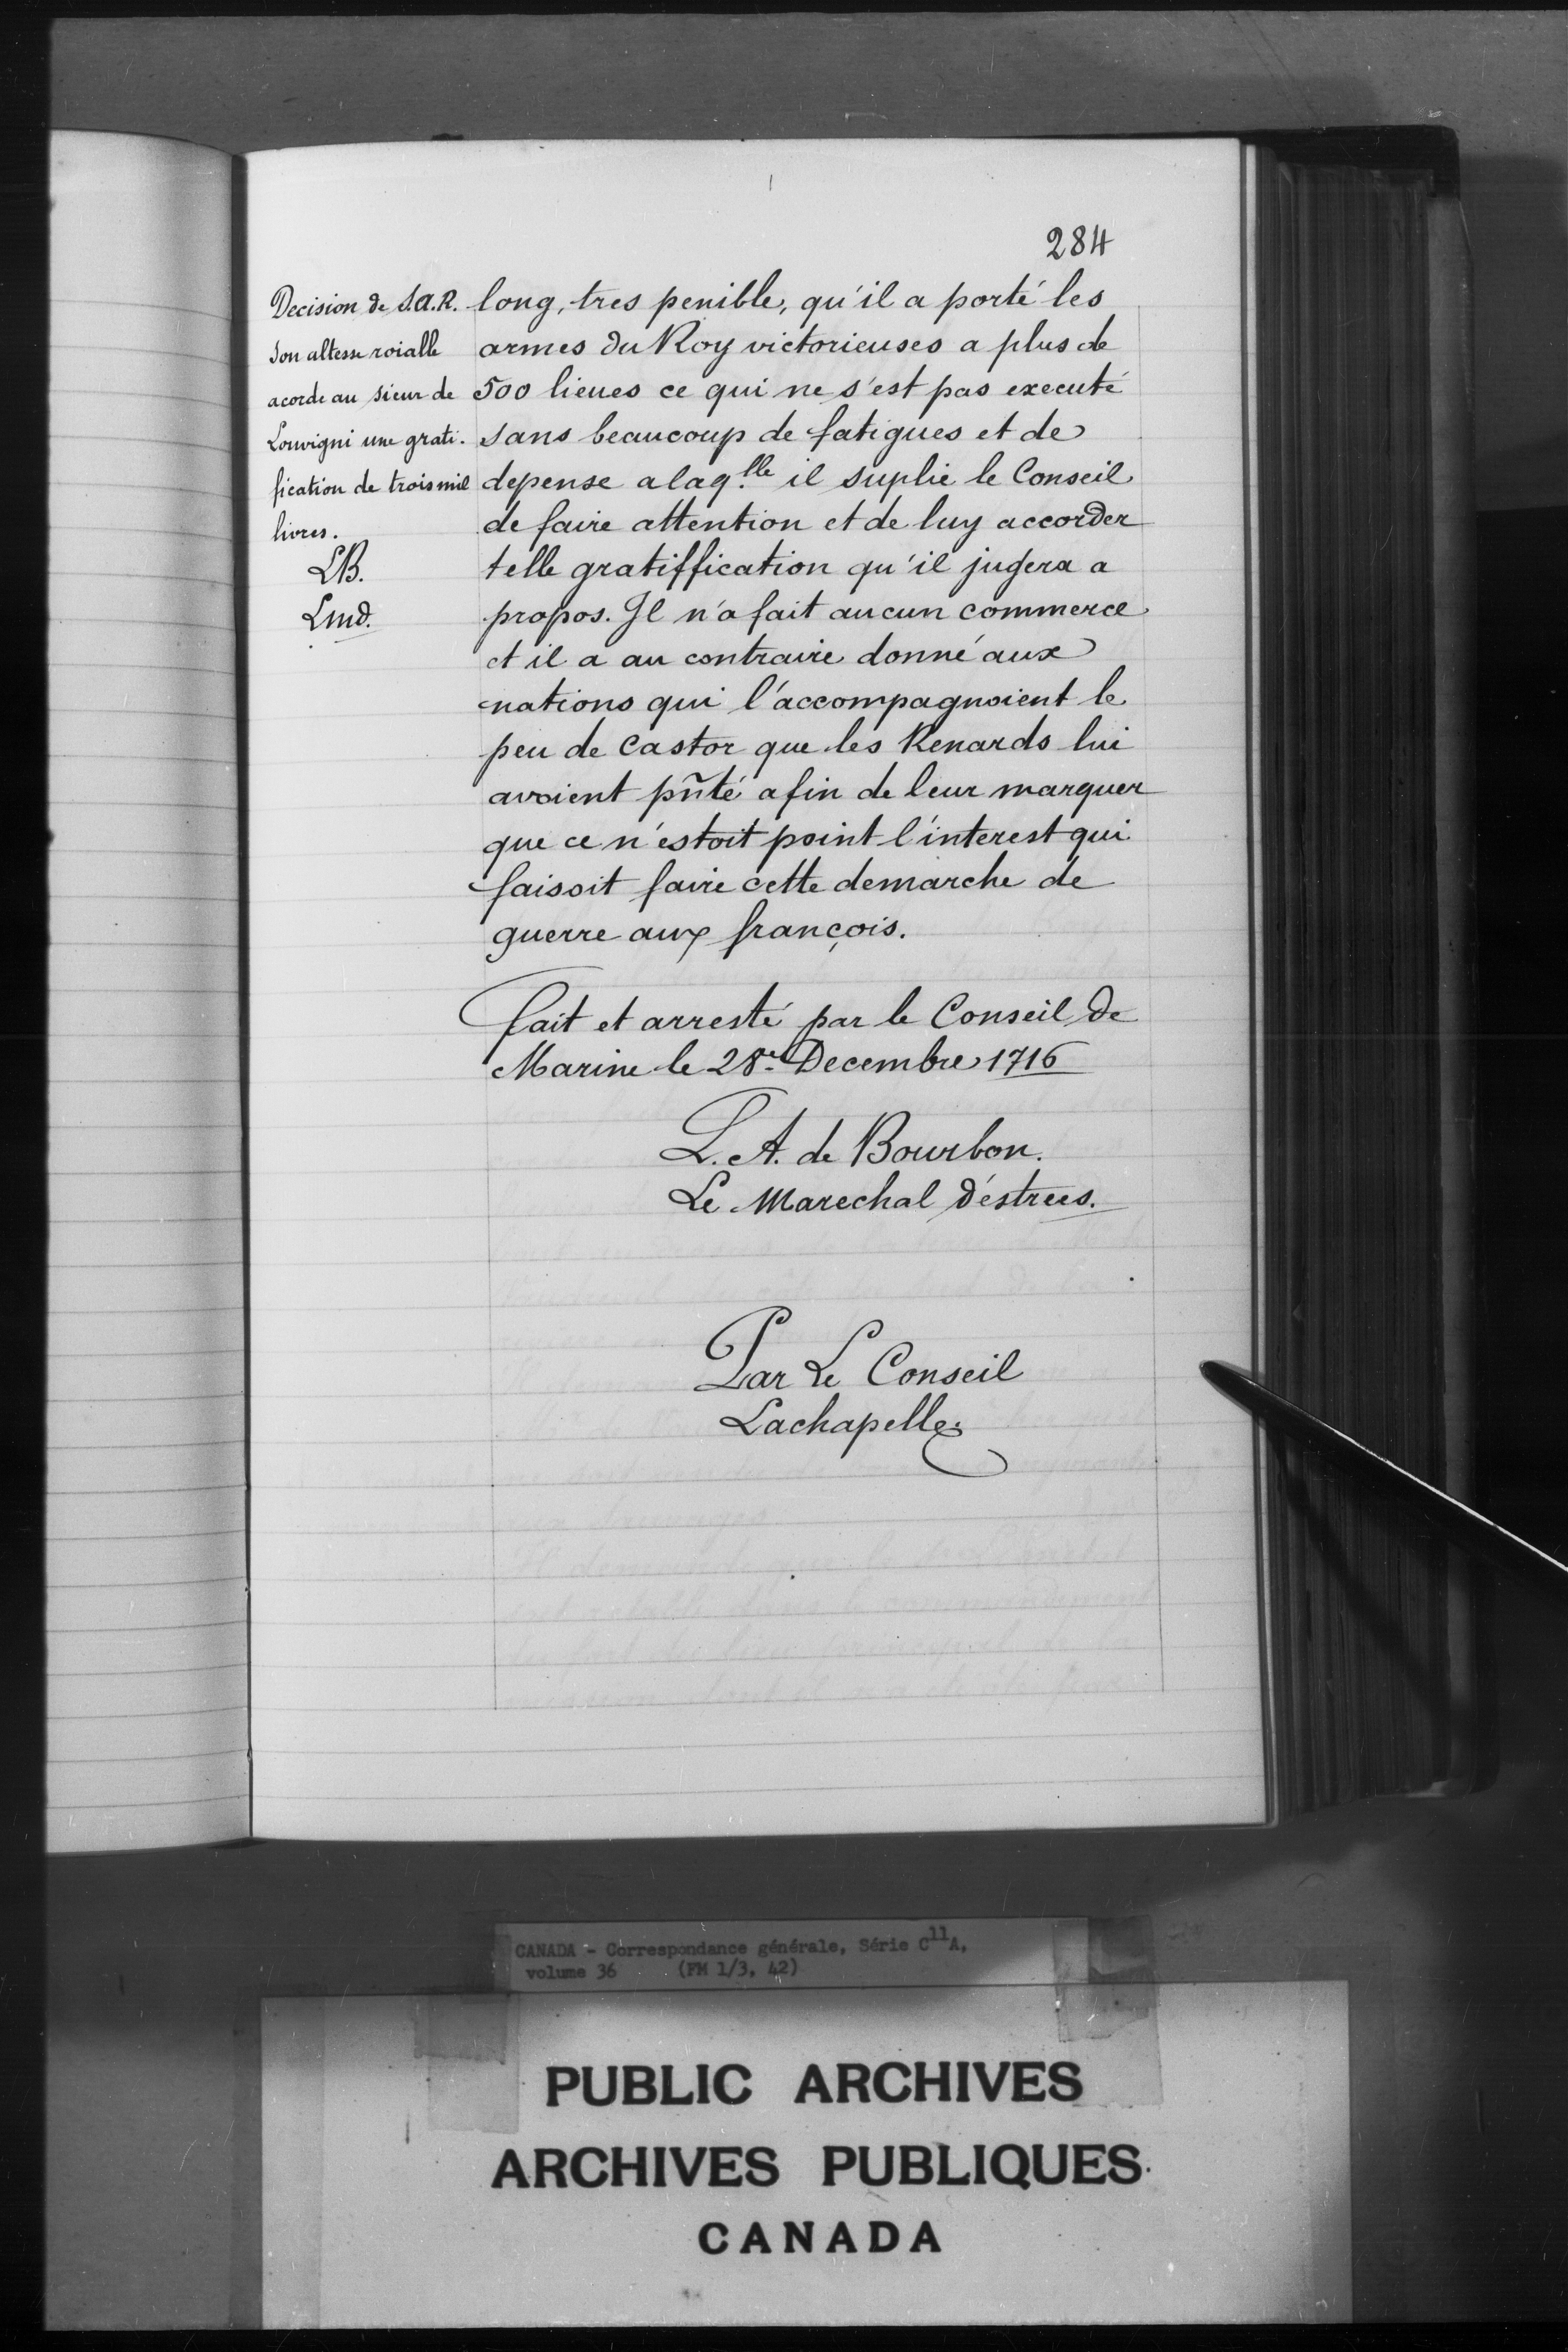 284
Decision de S.A.R.
Son altesse roialle
acorde au sieur de
Louvigni une grati-
fication de trois mil
livres.
LB.
Lmd.
long, tres penible, qu'il a porté les
armes du Roy victorieuses a plus de
500 lieues ce qui ne s'est pas executé
sans beaucoup de fatigues et de
depense a laq.lle il suplie le Conseil
de faire attention et de luy accorder
telle gratiffication qu'il jugera a
propos. Il n'a fait aucun commerce
et il a au contraire donné aux
nations qui l'accompagnoient le
peu de Castor que les Renards lui
avoient pñté afin de leur marquer
que ce n'estoit point l'interest qui
faisoit faire cette demarche de
guerre aux françois.
Fait et arresté par le Conseil de
Marine le 28e. Decembre 1716
L. A. de Bourbon.
Le Marechal d'éstrees.
Par Le Conseil
Lachapelle.
CANADA - Correspondance générale, Série C11A,
volume 36 (FM 1/3, 42)
PUBLIC ARCHIVES
ARCHIVES PUBLIQUES
CANADA